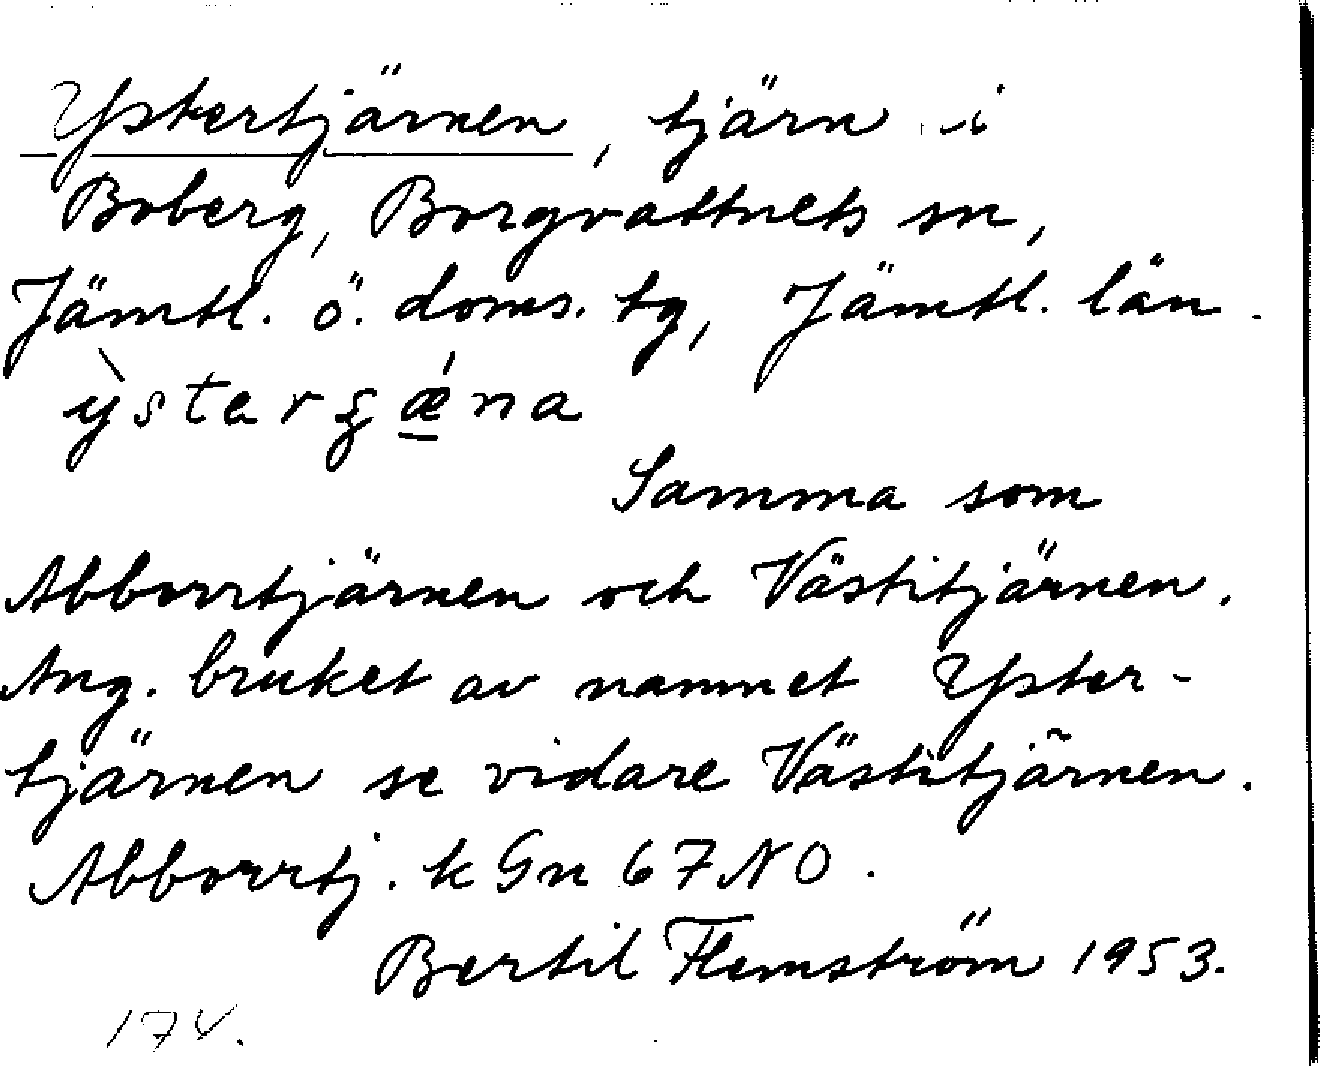 Ystertjärnen, tjärn i
Boberg, Borgvattnets sn,
Jämtl. ö. doms. tg, Jämtl. län.
Samma som
Abborrtjärnen och Västitjärnen.
Ang. bruket av namnet Yster-
tjärnen se vidare Västitjärnen.
Abborrtj. k Gn 67 NO.
Bertil Flemström 1953.
174.